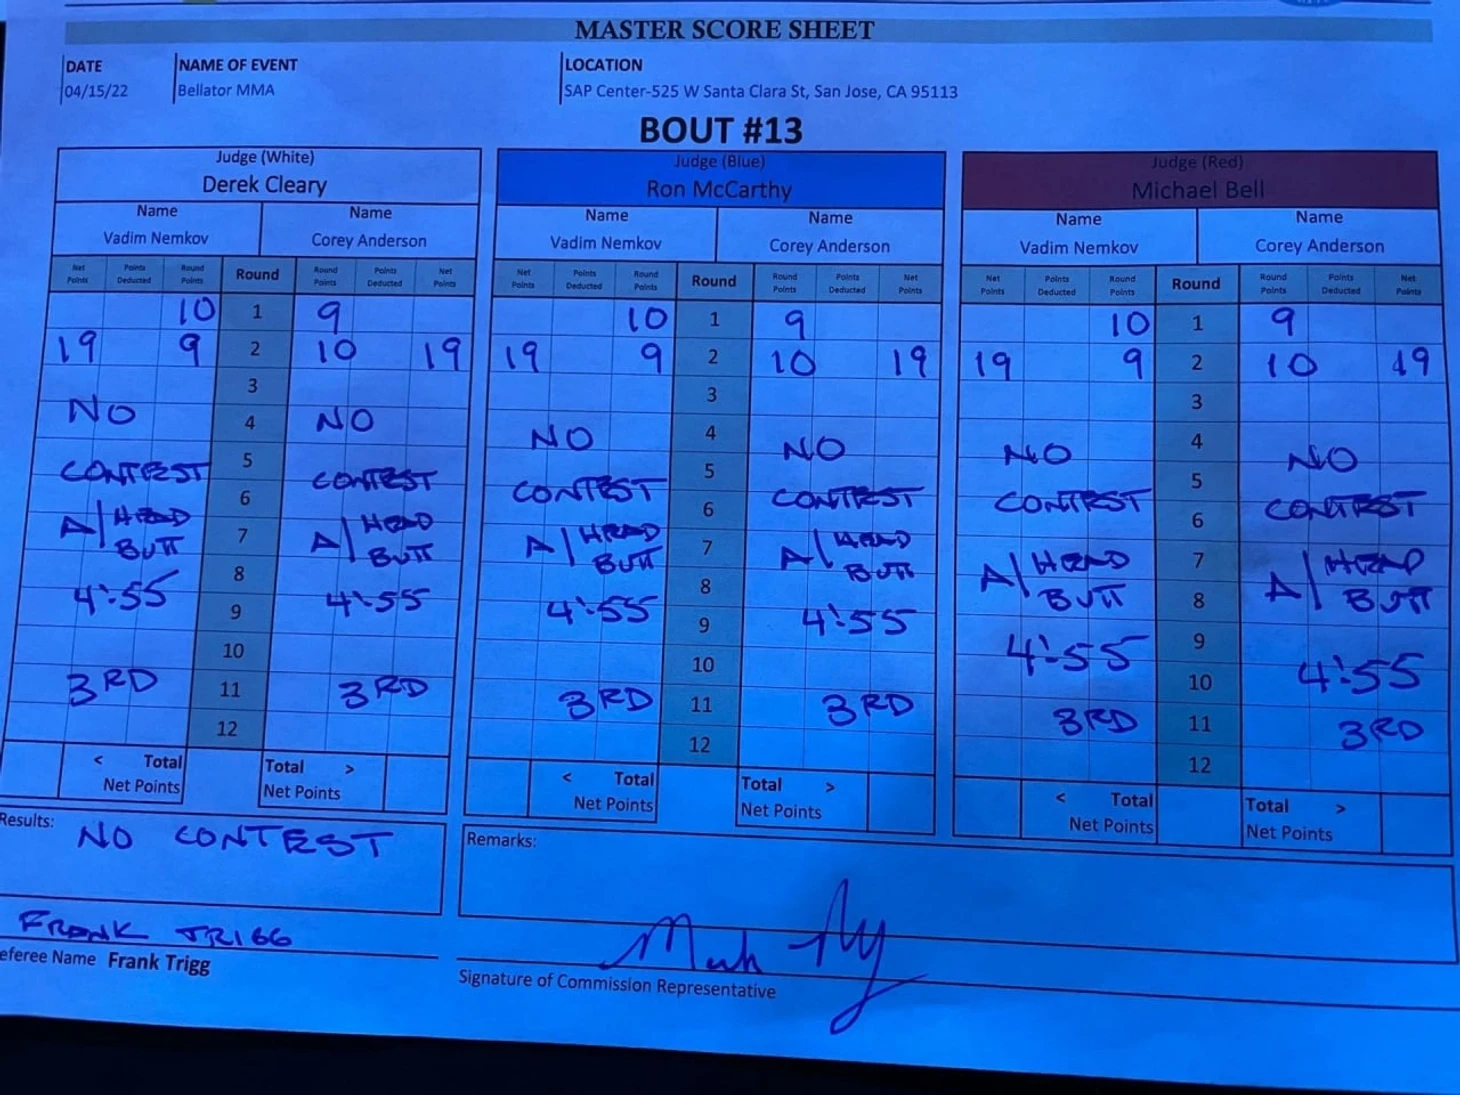 MASTER SCORE SHEET
DATE NAME OF EVENT LOCATION
04/15/22 Bellator MMA SAP Center-525 W Santa Clara St, San Jose, CA 95113
BOUT #13
Judge (White) Judge (Blue) Judge (Red)
Derek Cleary Ron McCarthy Michael Bell
Name Name Name Name Name Name
Vadim Nemkov Corey Anderson Vadim Nemkov Corey Anderson Vadim Nemkov Corey Anderson
Net Points Points Deducted Round Points Round Round Points Points Deducted Net Points Net Points Points Deducted Round Points Round Round Points Points Deducted Net Points Net Points Points Deducted Round Points Round Round Points Points Deducted Net Points
10 1 9 10 1 9 10 1 9
19 9 2 10 19 19 9 2 10 19 19 9 2 10 19
3 3 3
NO 4 NO NO 4 NO NO 4 NO
CONTEST 5 CONTEST CONTEST 5 CONTEST CONTEST 5 CONTEST
6 6 6
A/HEAD BUTT 7 A/HEAD BUTT A/HEAD BUTT 7 A/HEAD BUTT A/HEAD BUTT 7 A/HEAD BUTT
8 8 8
4:55 9 4:55 4:55 9 4:55 4:55 9 4:55
10 10 10
3RD 11 3RD 3RD 11 3RD 3RD 11 3RD
12 12 12
< Total Total > < Total Total > < Total Total >
Net Points Net Points Net Points Net Points Net Points Net Points
Results: NO CONTEST
Remarks:
FRANK TRIGG
eferee Name Frank Trigg
Signature of Commission Representative